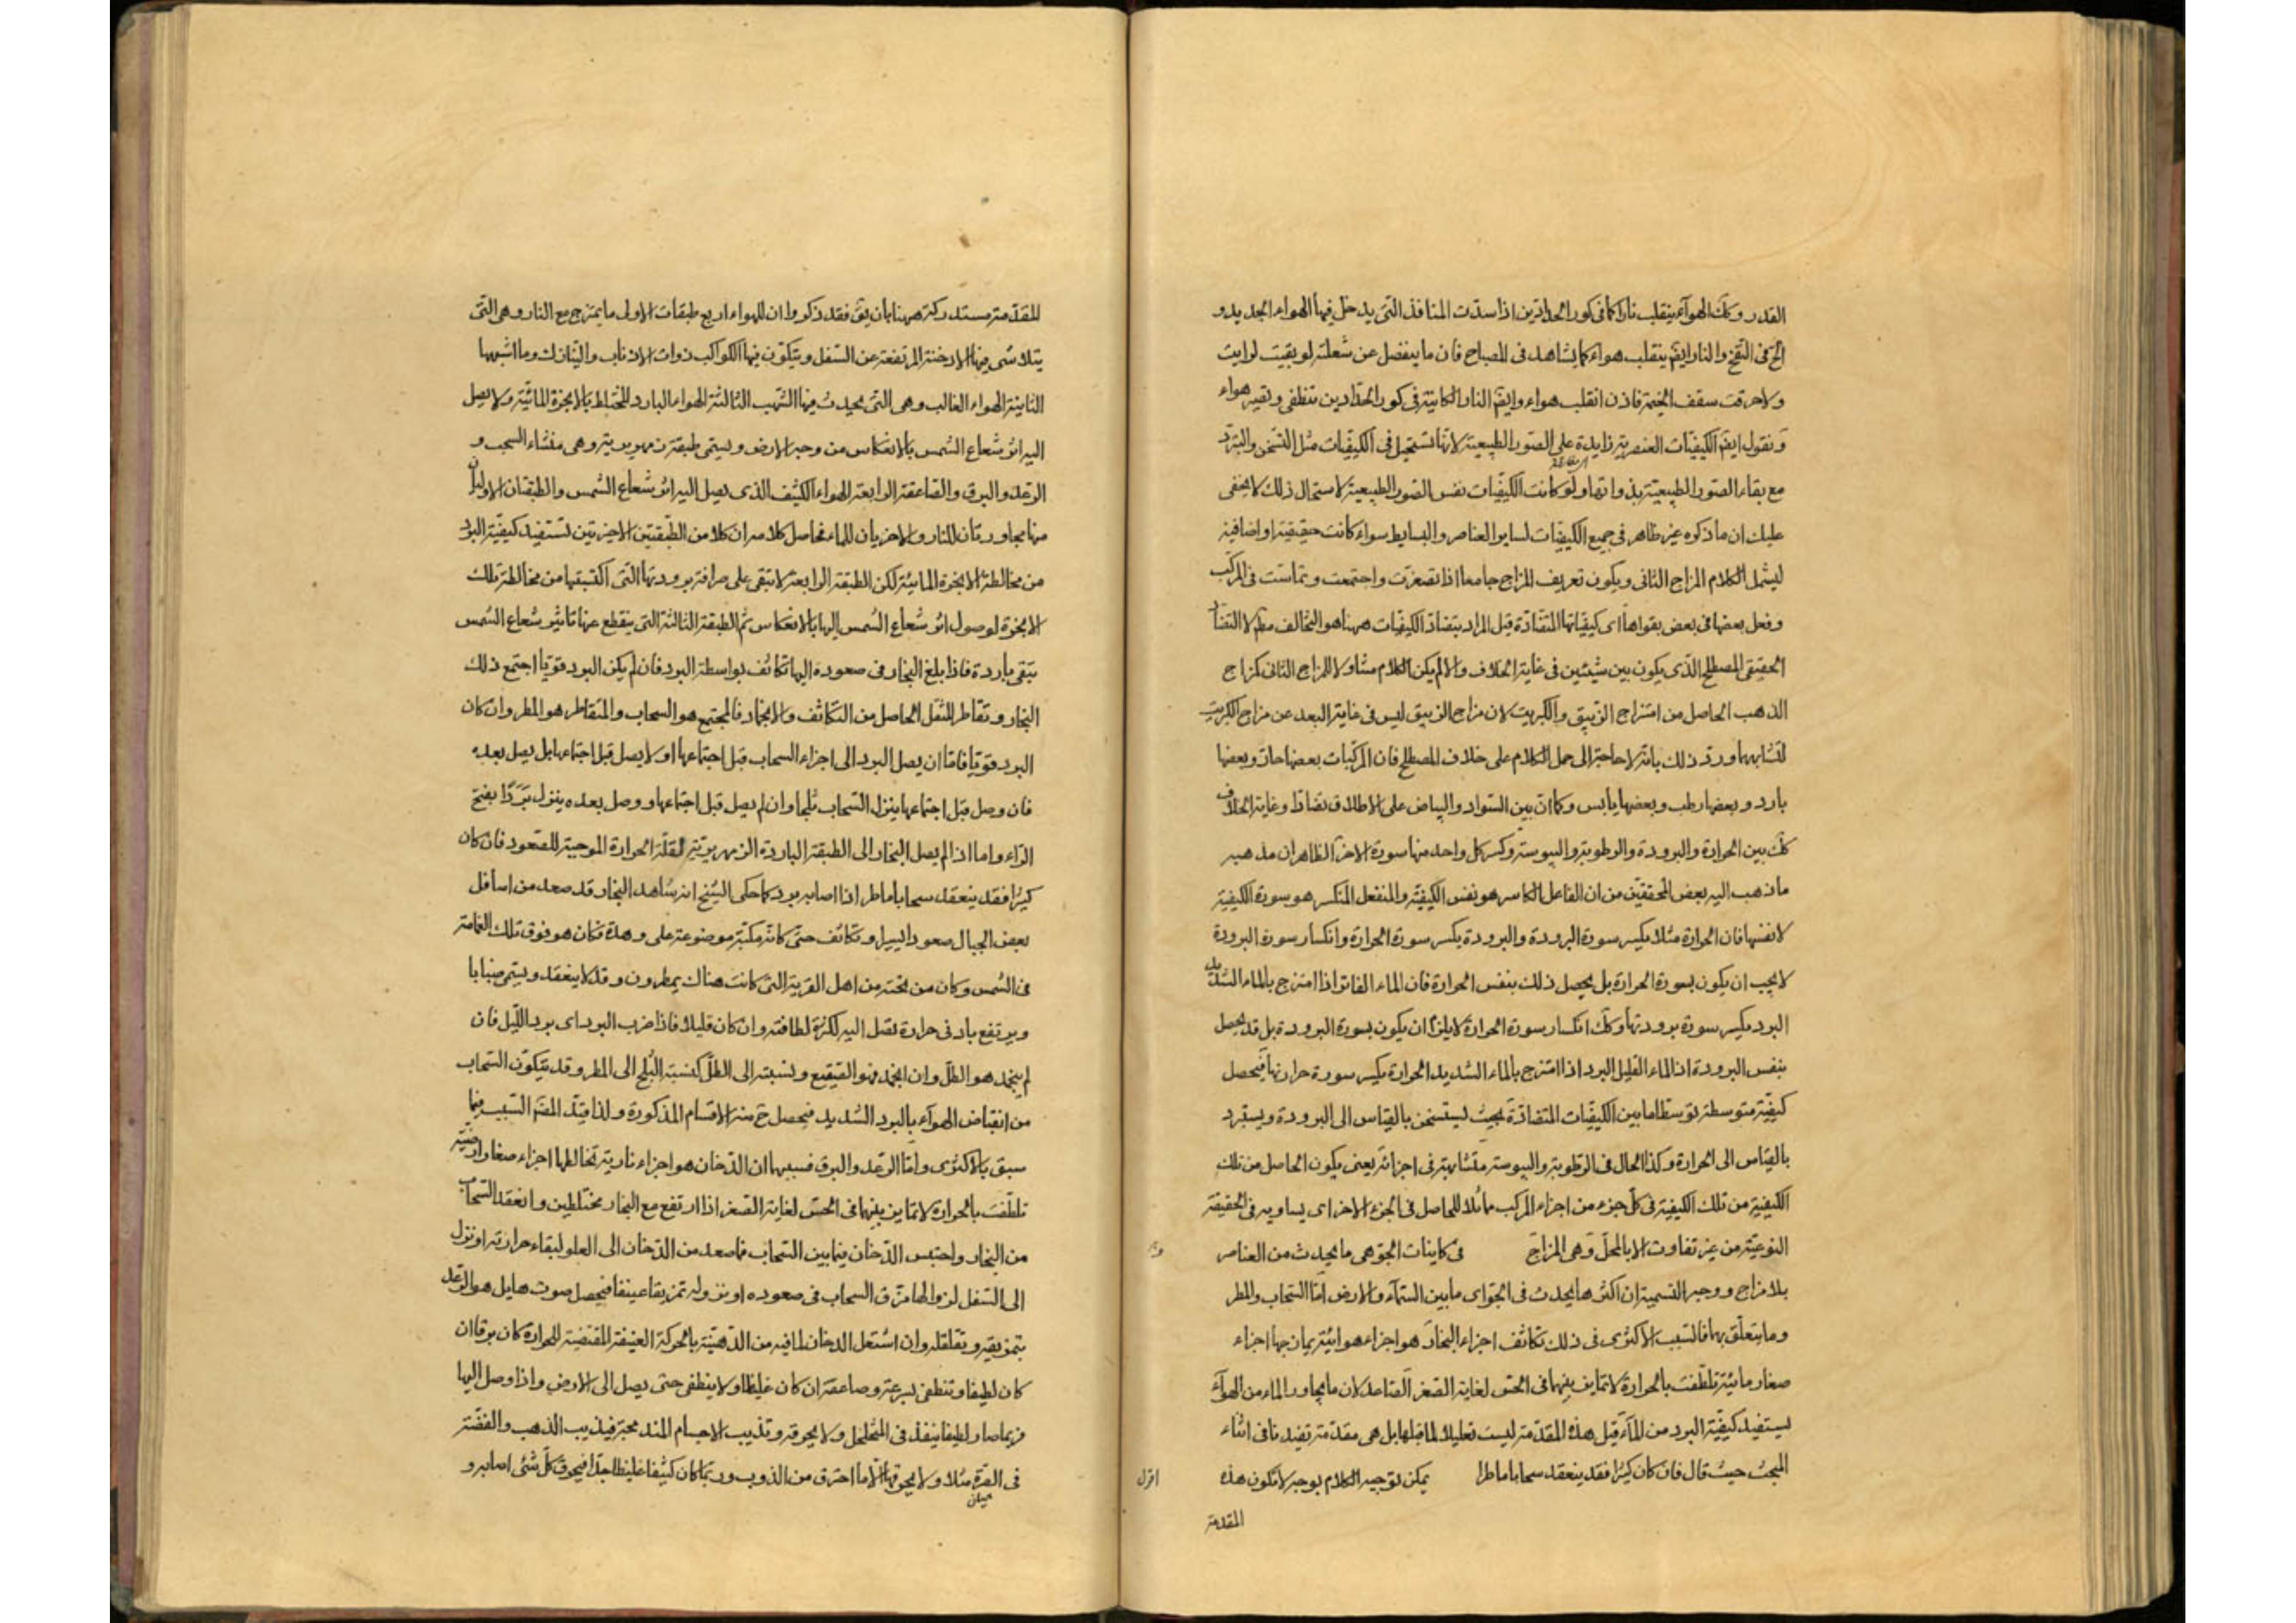 القدر وكك الهوآء ينقلب نارا كما فى كور الحدادين اذا سدت المنافذ التى يدخل فيها الهواء الجديد و
الح فى النفخ والنار ايضا ينقلب هواء كما يشاهد فى المصباح فان ما ينفصل عن شعلته لو بقيت لرايت
ولاحرقت سقف الخيمة فاذن انقلب هواء وايضا النار الكاينة فى كور الحدادين تنطفى وتصير هواء
ونقول ايضا الكيفيات العنصرية زايدة على الصور الطبيعية لانها تستحيل فى الكيفيات مثل التسخن والتبرد
مع بقاء الصور الطبيعية بذواتها ولو كانت الكيفيات نفس الصور الطبيعية لاستحال ذلك لا يخفى
عليك ان ما ذكره غير ظاهر فى جميع الكيفيات لساير العناصر والبسايط سواء كانت حقيقية او اضافية
ليشمل الكلام المزاج الثانى ويكون تعريف المزاج جامعا اذا تصغرت واجتمعت وتماست فى المركب
وفعل بعضها فى بعض بقواها اى كيفياتها المتضادة قيل المراد بتضاد الكيفيات ههنا هو التخالف مطلقا لا التضاد
الحقيقى المصطلح الذى يكون بين شيئين فى غاية الخلاف والا لم يكن الكلام متناولا للمزاج الثانى كمزاج
الذهب الحاصل من امتزاج الزيبق والكبريت لان مزاج الزيبق ليس فى غاية البعد عن مزاج الكبريت
لتشابههما ورد ذلك بانه لا حاجة الى حمل الكلام على خلاف المصطلح فان المركبات بعضها حار وبعضها
بارد وبعضها رطب وبعضها يابس وكما ان بين السواد والبياض على الاطلاق تضادا وغاية الخلاف
كك بين الحرارة والبرودة والرطوبة واليبوسة وكسر كل واحد منها سورة الاخر الظاهر ان مذهبه
ما ذهب اليه بعض المحققين من ان الفاعل الكاسر هو نفس الكيفية والمنفعل المنكسر هو سورة الكيفية
لا نفسها فان الحرارة مثلا يكسر سورة البرودة والبرودة يكسر سورة الحرارة وانكسار سورة البرودة
لا يجب ان يكون بسورة الحرارة بل يحصل ذلك بنفس الحرارة فان الماء الفاتر اذا امتزج بالماء الشديد
البرد يكسر سورة برودتها وكك انكسار سورة الحرارة لا يلزم ان يكون بسورة البرودة بل قد يحصل
بنفس البرودة اذ الماء القليل البرد اذا امتزج بالماء الشديد الحرارة يكسر سورة حرارتها فيحصل
كيفية متوسطة توسطا ما بين الكيفيات المتضادة بحيث يستسخن بالقياس الى البرودة ويستبرد
بالقياس الى الحرارة وكذا الحال فى الرطوبة واليبوسة متشابهة فى اجزائه يعنى يكون الحاصل من تلك
الكيفية من تلك الكيفية فى كل جزء من اجزاء المركب مماثلا للحاصل فى الجزء الاخر اى يساويه فى الحقيقة
النوعية من غير تفاوت الا بالمحل وهى المزاج فى كاينات الجو هى ما يحدث من العناصر
بلا مزاج ووجه التسمية ان اكثرها يحدث فى الجو اى ما بين السماء والارض اما السحاب والمطر
وما يتعلق بهما فالسبب الاكثرى فى ذلك تكاثف اجزاء البخار هو اجزاء هوائية يمازجها اجزاء
صغار مائية تلطفت بالحرارة لا تمايز بينهما فى الحس لغاية الصغر الصاعد لان ما يجاور الماء من الهوآء
يستفيد كيفية البرد من المآء قيل هذه المقدمة ليست تعليلا لما قبلها بل هى مقدمة تفيدنا فى اثناء
المبحث حيث قال فان كان كثيرا فقد ينعقد سحابا ماطرا يمكن توجيه الكلام بوجه لا تكون هذه
اقول
المقدمة
المقدمة مستدركة ههنا بان يق فقد ذكروا ان للهواء اربع طبقات الاولى ما يمتزج مع النار وهى التى
يتلاشى فيها الادخنة المرتفعة عن السفل ويتكون فيها الكواكب ذوات الاذناب والنيازك وما اشبهها
الثانية الهواء الغالب وهى التى يحدث فيها الشهب الثالثة الهواء البارد المختلط بالابخرة المائية ولا يصل
اليه اثر شعاع الشمس بالانعكاس من وجه الارض ويسمى طبقة زمهريرية وهى منشاء السحب و
الرعد والبرق والصاعقة الرابعة الهواء الكثيف الذى يصل اليه اثر شعاع الشمس والطبقتان الاوليان
منها مجاورتان للنار والاخريان للماء فحاصل كلامه ان كلا من الطبقتين الاخيرتين تستفيد كيفية البرد
من مخالطة الابخرة المائية لكن الطبقة الرابعة لا تبقى على صرافة برودتها التى اكتسبتها من مخالطة تلك
الابخرة لوصول اثر شعاع الشمس اليها بالانعكاس ثم الطبقة الثالثة التى ينقطع عنها تاثير شعاع الشمس
تبقى باردة فاذا بلغ البخار فى صعوده اليها تكاثف بواسطة البرد فان لم يكن البرد قويا اجتمع ذلك
البخار وتقاطر للثقل الحاصل من التكاثف والانجماد فالمجتمع هو السحاب والمتقاطر هو المطر وان كان
البرد قويا فاما ان يصل البرد الى اجزاء السحاب قبل اجتماعها او لا يصل قبل اجتماعها بل يصل بعده
فان وصل قبل اجتماعها ينزل السحاب ثلجا وان لم يصل قبل اجتماعها ووصل بعده ينزل بَرَدًا بفتح
الراء واما اذا لم يصل البخار الى الطبقة الباردة الزمهريرية لقلة الحرارة الموجبة للصعود فان كان
كثيرا فقد ينعقد سحابا ماطرا اذا اصابه برد كما حكى الشيخ انه شاهد البخار قد صعد من اسافل
بعض الجبال صعودا يسيرا وتكاثف حتى كانه مكبة موضوعة على وهدة فكان هو فوق تلك الغمامة
فى الشمس وكان من تحته من اهل القرية التى كانت هناك يمطرون وقد لا ينعقد ويسمى ضبابا
ويرتفع بادنى حرارة تصل اليه لكثرة لطافته وان كان قليلا فاذا ضرب البرد اى برد الليل فان
لم ينجمد هو الطل وان انجمد فهو الصقيع ونسبته الى الطل كنسبة الثلج الى المطر وقد يتكون السحاب
من انقباض الهوآء بالبرد الشديد فيحصل ح منه الاقسام المذكورة ولذا قيد المصنف السبب فيما
سبق بالاكثرى واما الرعد والبرق فسببهما ان الدخان هو اجزاء نارية تخالطها اجزاء صغار ارضية
تلطفت بالحرارة لا تمايز بينهما فى الحس لغاية الصغر اذا ارتفع مع البخار مختلطين وانعقد السحاب
من البخار واحتبس الدخان فيما بين السحاب فما صعد من الدخان الى العلو لبقاء حرارته او نزل
الى السفل لزوالها مزق السحاب فى صعوده او نزوله تمزيقا عنيفا فيحصل صوت هايل هو الرعد
بتمزيقه وتقلقله وان اشتعل الدخان لما فيه من الدهنية بالحركة العنيفة المقتضية للحرارة كان برقا ان
كان لطيفا وتنطفى بسرعة وصاعقة ان كان غليظا ولا ينطفى حتى يصل الى الارض واذا وصل اليها
فربما صار لطيفا ينفذ فى المتخلخل ولا يحرقه وتذيب الاجسام المندمجة فيذيب الذهب والفضة
فى الصرة مثلا ولا يحرقها الا ما احترق من الذوب وربما كان كثيفا غليظا جدا فيحرق كل شئ اصابه و